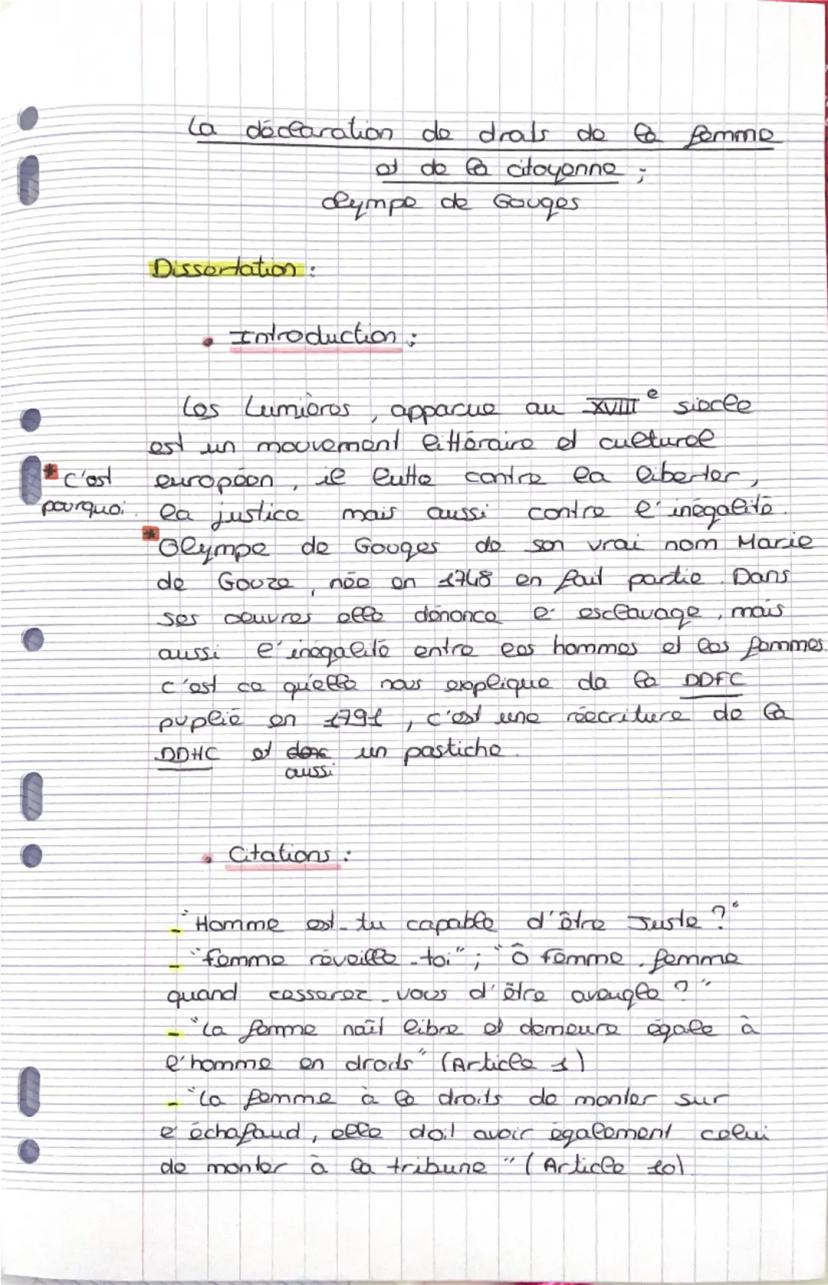 La déclaration de droits de la femme
et de la citoyenne ;
Olympe de Gouges
Dissertation :
• Introduction :
Les Lumières, apparue au XVIIIe siècle
est un mouvement littéraire et culturel
européen, il lutte contre la liberter,
* c'est
pourquoi
la justice mais aussi contre l'inégalité.
*Olympe de Gouges de son vrai nom Marie
de Gouze, née en 1748 en fait partie. Dans
ses oeuvres elle dénonce l'esclavage, mais
aussi l'inégalité entre les hommes et les femmes.
c'est ce qu'elle nous explique da la DDFC
puplié en 1791, c'est une réecriture de la
DDHC et donc un pastiche.
aussi
• Citations :
- "Homme est-tu capable d'être Juste ?"
- "femme réveille-toi" ; "Ô femme, femme
quand cesserez-vous d'être aveugle ?"
- "La femme naît libre et demeure égale à
l'homme en droits" (Article 1)
- "La femme à le droits de monter sur
l'échafaud, elle doit avoir également celui
de monter à la tribune" (Article 10)